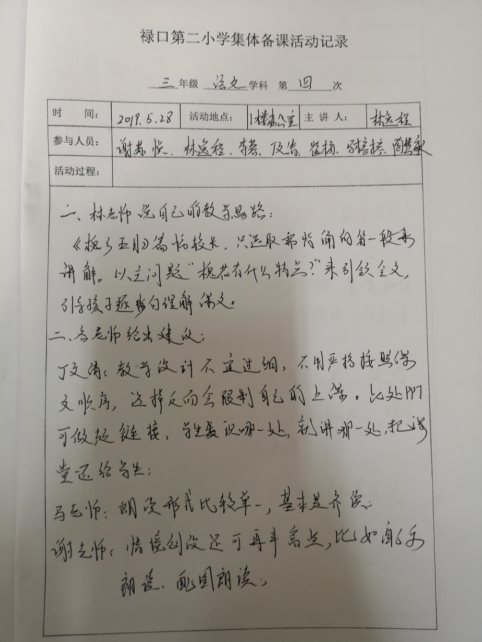 禄口第二小学集体备课活动记录
三 年级 语文 学科 第 四 次
时 间: 2019.5.28 活动地点: 1楼办公室 主 讲 人: 林逸程
参与人员: 谢 悦、林逸程、李 、丁文倩、
活动过程:
一、林老师说自己的教学思路:
《 》篇幅较长,只选取 背诵的第一段来
讲解。以主问题“ 有什么特点?”来引领全文,
引导孩子逐句理解课文。
二、各老师给出建议:
丁文倩:教学设计不宜过细,不用严格按照课
文顺序,这样反而会限制自己的上课。比处PPT
可做超链接,学生发现哪一处,就讲那一处,把课
堂还给学生;
马老师:朗读形式比较单一,基本是齐读;
谢老师:情境创设还可再丰富点,比如配乐
朗读、配图朗读;